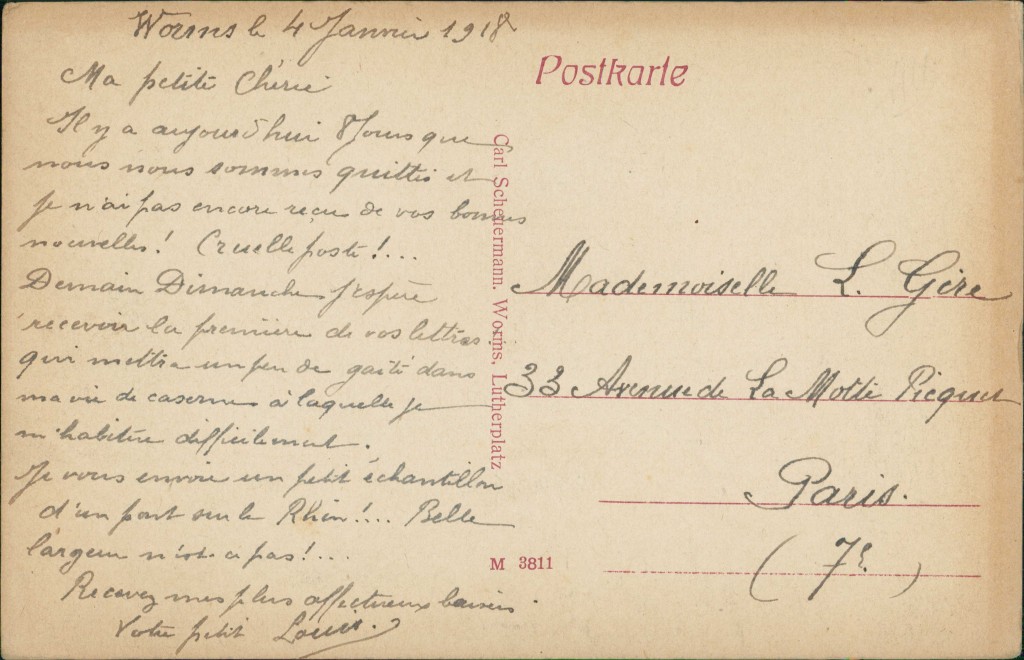 Worms le 4 Janvier 1918
Ma petite Chérie
Il y a aujourd'hui 8 Jours que
nous nous sommes quittés et
je n'ai pas encore reçu de vos bonnes
nouvelles! Cruelle poste!...
Demain Dimanche j'espère
recevoir la première de vos lettres.
qui mettra un peu de gaité dans
ma vie de caserne à laquelle je
m'habitue difficilement.
Je vous envoie un petit échantillon
d'un pont sur le Rhin!... Belle
largeur n'est-ce pas!...
Recevez mes plus affectueux baisers.
Votre petit Louis.
Postkarte
Carl Scheuermann. Worms, Lutherplatz
M 3811
Mademoiselle L. Gire
33 Avenue de La Motte Picquet
Paris.
(7e)